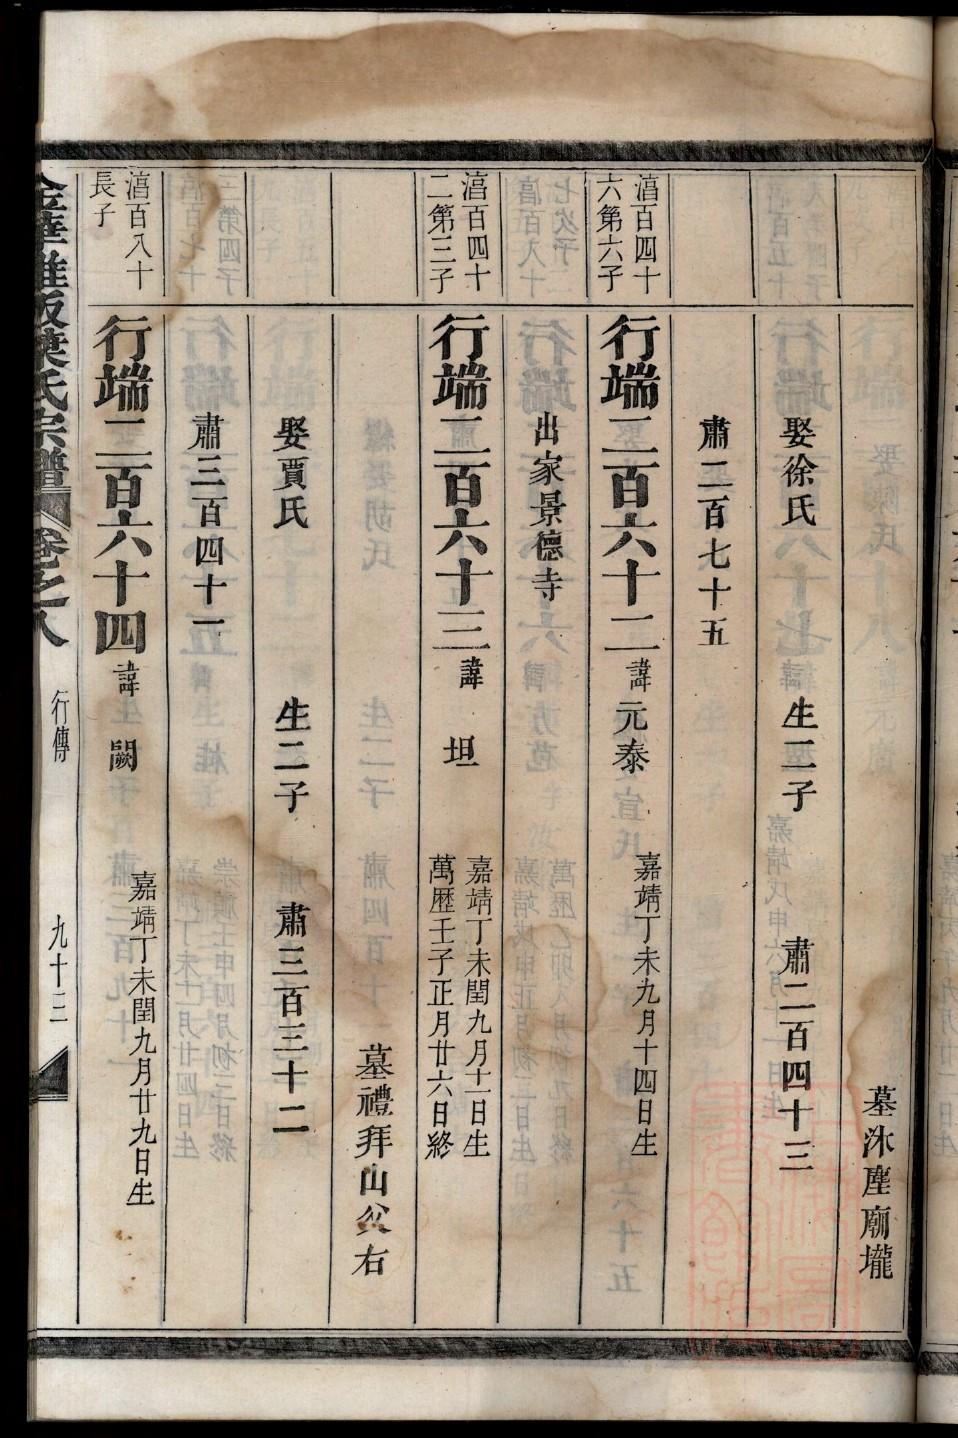 墓沐塵廟壠
娶徐氏 生二子 肅二百四十三
肅二百七十五
湻百四十
六第六子
行端二百六十二 諱元泰 嘉靖丁未九月十四日生
出家景德寺
湻百四十
二第三子
行端二百六十三 諱坦 嘉靖丁未閏九月十一日生
萬歷壬子正月廿六日終
墓禮拜山父右
娶賈氏 生二子 肅三百三十二
肅三百四十一
湻百八十
長子
行端二百六十四 諱闕 嘉靖丁未閏九月廿九日生
氏宗譜 卷之八 行傳 九十三